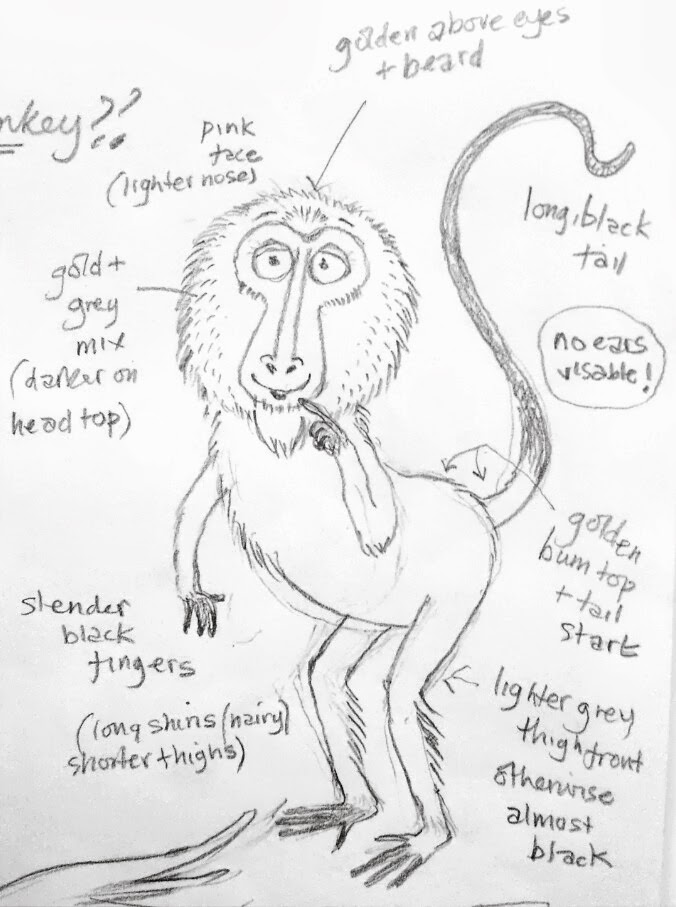 golden above eyes
+ beard
nkey??
pink
face
(lighter nose)
gold +
grey
mix
(darker on
head top)
long, black
tail
no ears
visable!
golden
bum top
+ tail
start
slender
black
fingers
(long shins (hairy)
shorter thighs)
lighter grey
thigh front
otherwise
almost
black